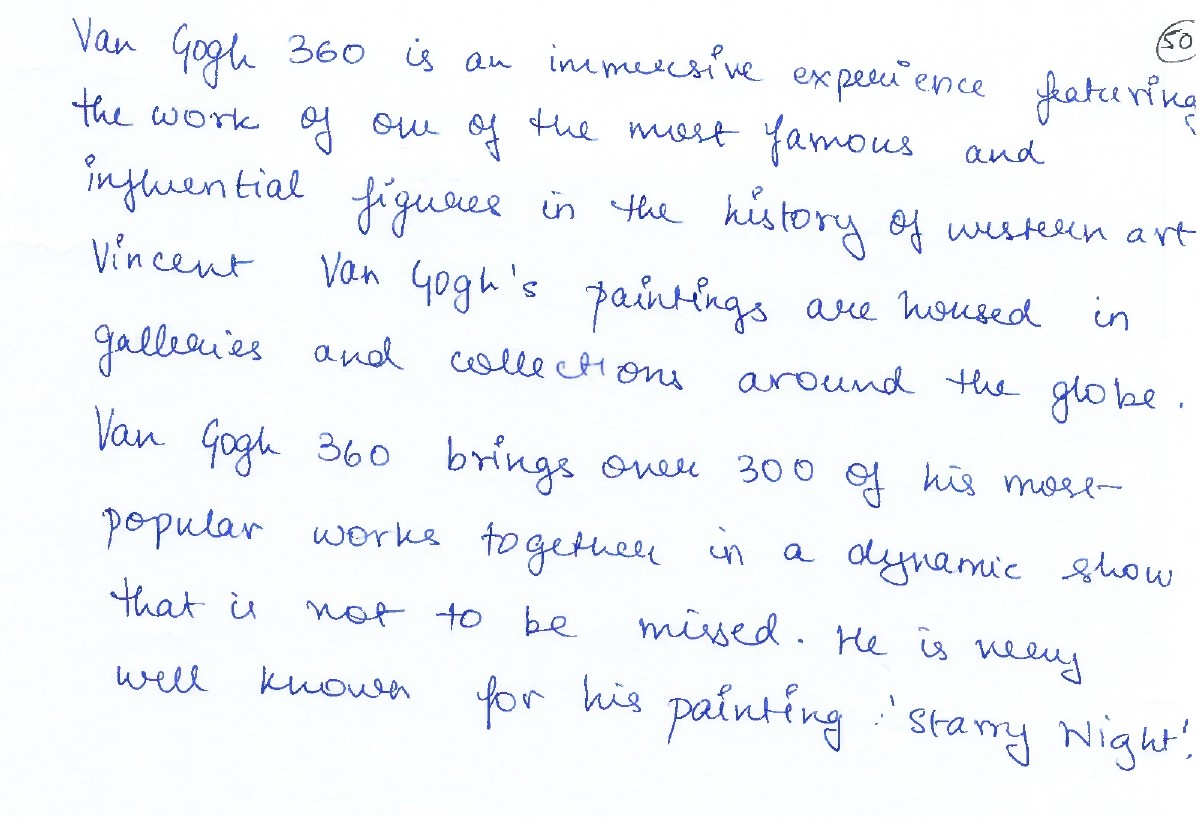 50
Van Gogh 360 is an immersive experience featuring
the work of one of the most famous and
influential figures in the history of western art
Vincent Van Gogh's paintings are housed in
galleries and collections around the globe.
Van Gogh 360 brings over 300 of his most
popular works together in a dynamic show
that is not to be missed. He is very
well known for his painting :'Starry Night'.